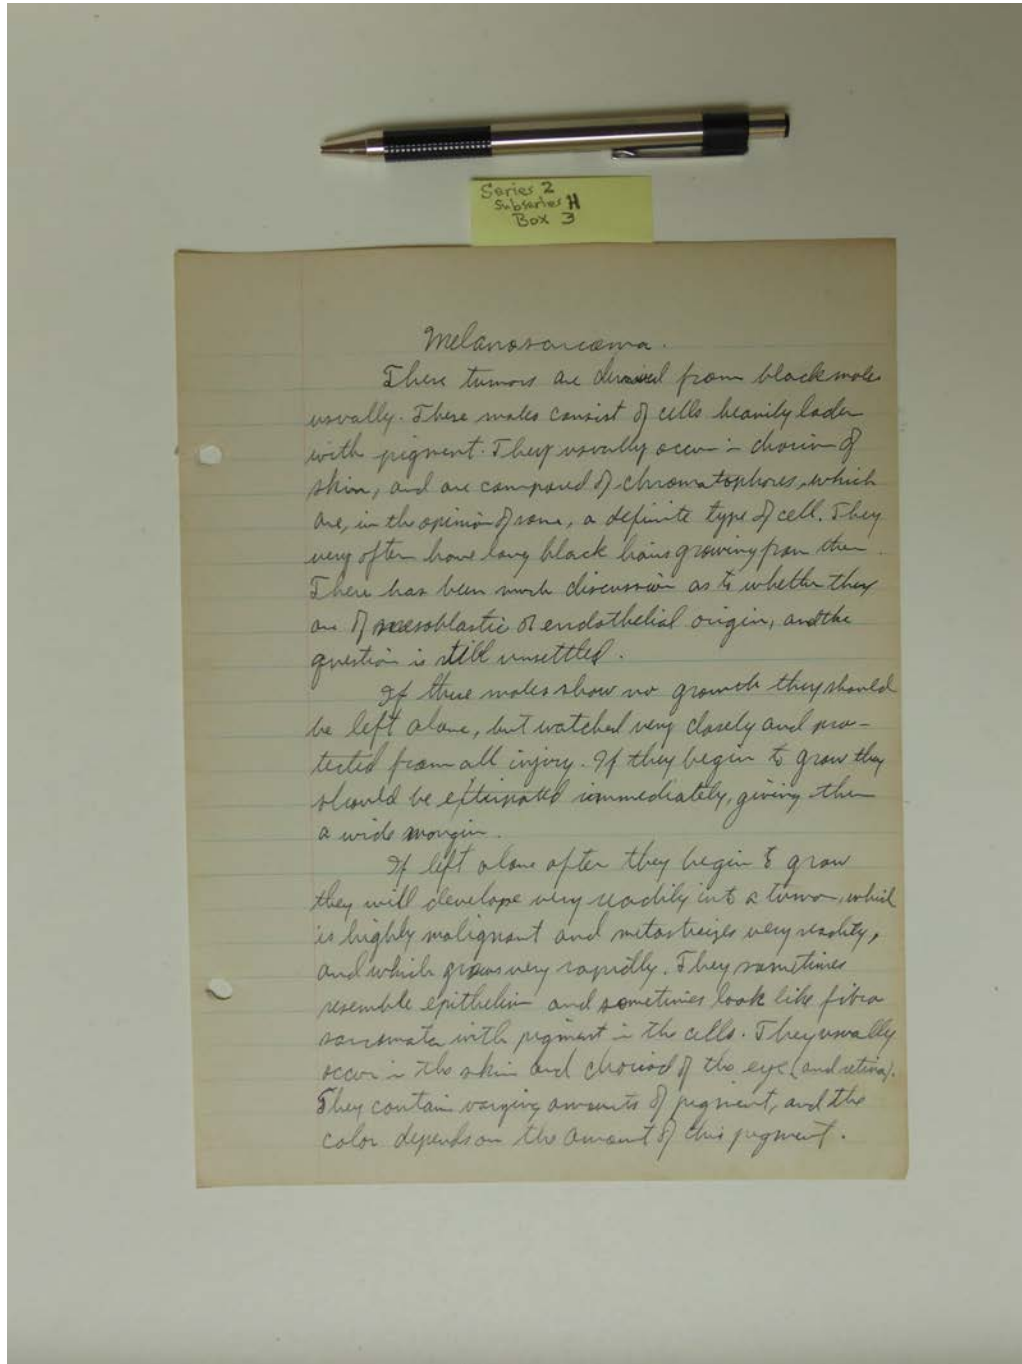 Series 2
Subseries H
Box 3
Melanosarcoma.
These tumors are derived from black moles
usually. These moles consist of cells heavily laden
with pigment. They usually occur in chorion of
skin, and are composed of chromatophores, which
are, in the opinion of some, a definite type of cell. They
very often have long black hairs growing from them.
There has been much discussion as to whether they
are of mesoblastic or endothelial origin, and the
question is still unsettled.
If these moles show no growth they should
be left alone, but watched very closely and pro-
tected from all injury. If they begin to grow they
should be extirpated immediately, giving them
a wide margin.
If left alone after they begin to grow
they will develope very readily into a tumor, which
is highly malignant and metastasizes very readily,
and which grows very rapidly. They sometimes
resemble epithelium and sometimes look like fibro
sarcomata with pigment in the cells. They usually
occur in the skin and choroid of the eye (and retina).
They contain varying amounts of pigment, and the
color depends on the amount of this pigment.